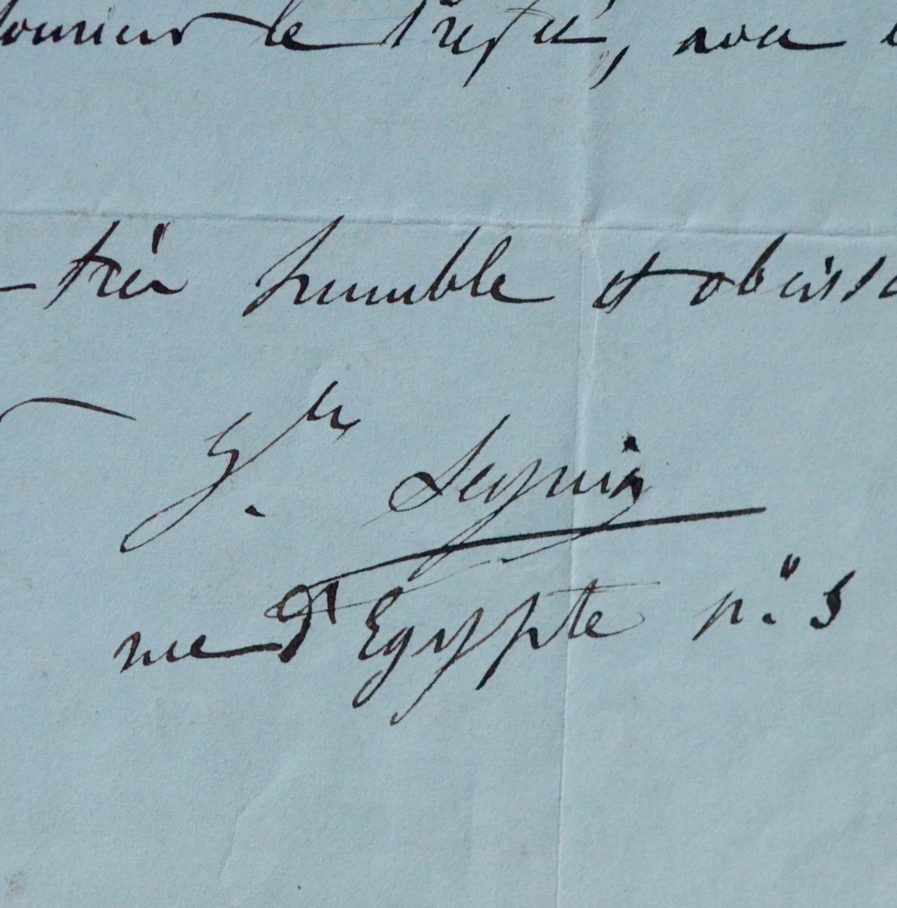 Monsieur le Préfet, avec
très humble et obéissa
Seguin
rue d'Egypte n° 3